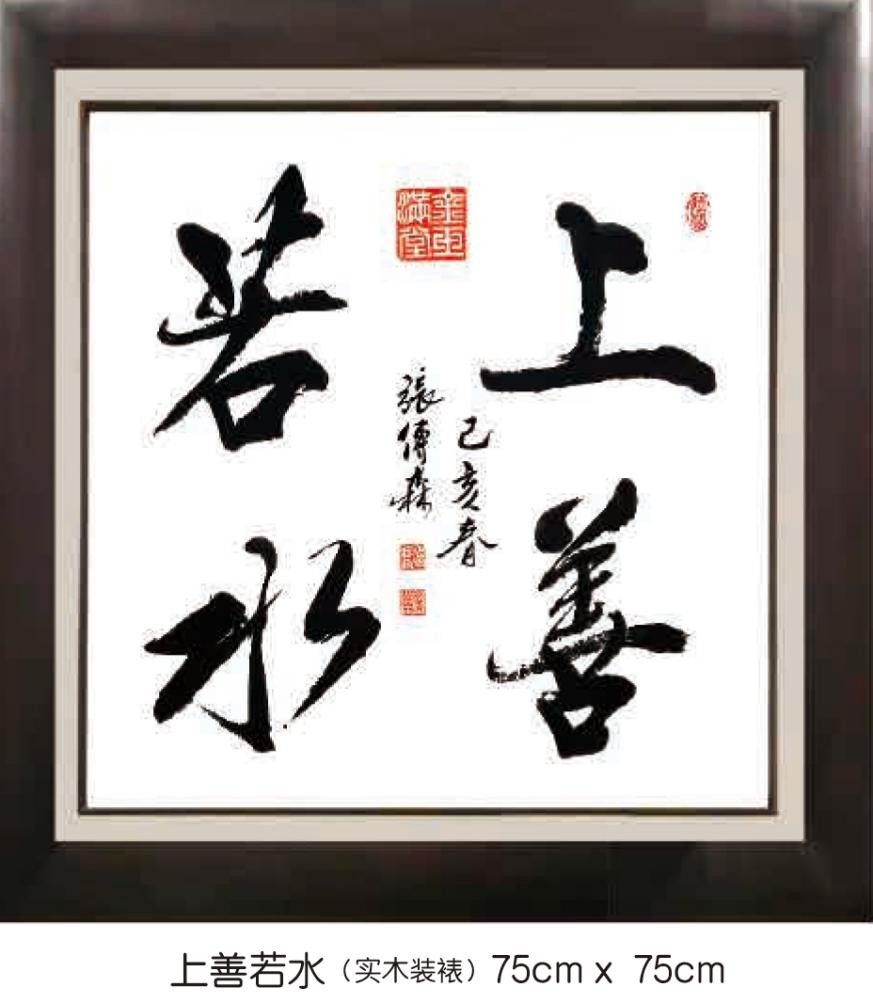 上善
若水
己亥春
張傳森
金玉滿堂
上善若水（实木装裱）75cm x 75cm